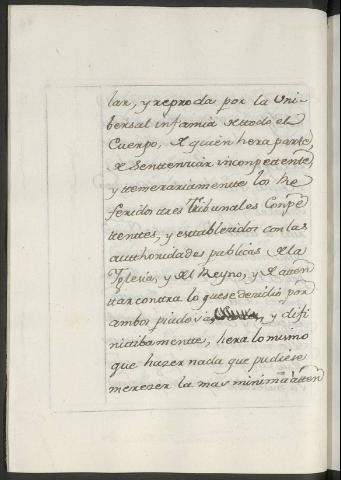 lar, y reproda por la Uni-
bersal infamia de todo el
Cuerpo, de quien hera parte,
de Sentenciar inconpetente,
y temerariamente los Re
feridos tres Tribunales Conpe
tentes, y establecidos con las
authoridades publicas de la
Yglesia, y del Reyno, y de atten
tar contra lo que se decidió por
ambos y difi
nitibamente, hera lo mismo
que hazer nada que pudiese
merezer la mas minima atten